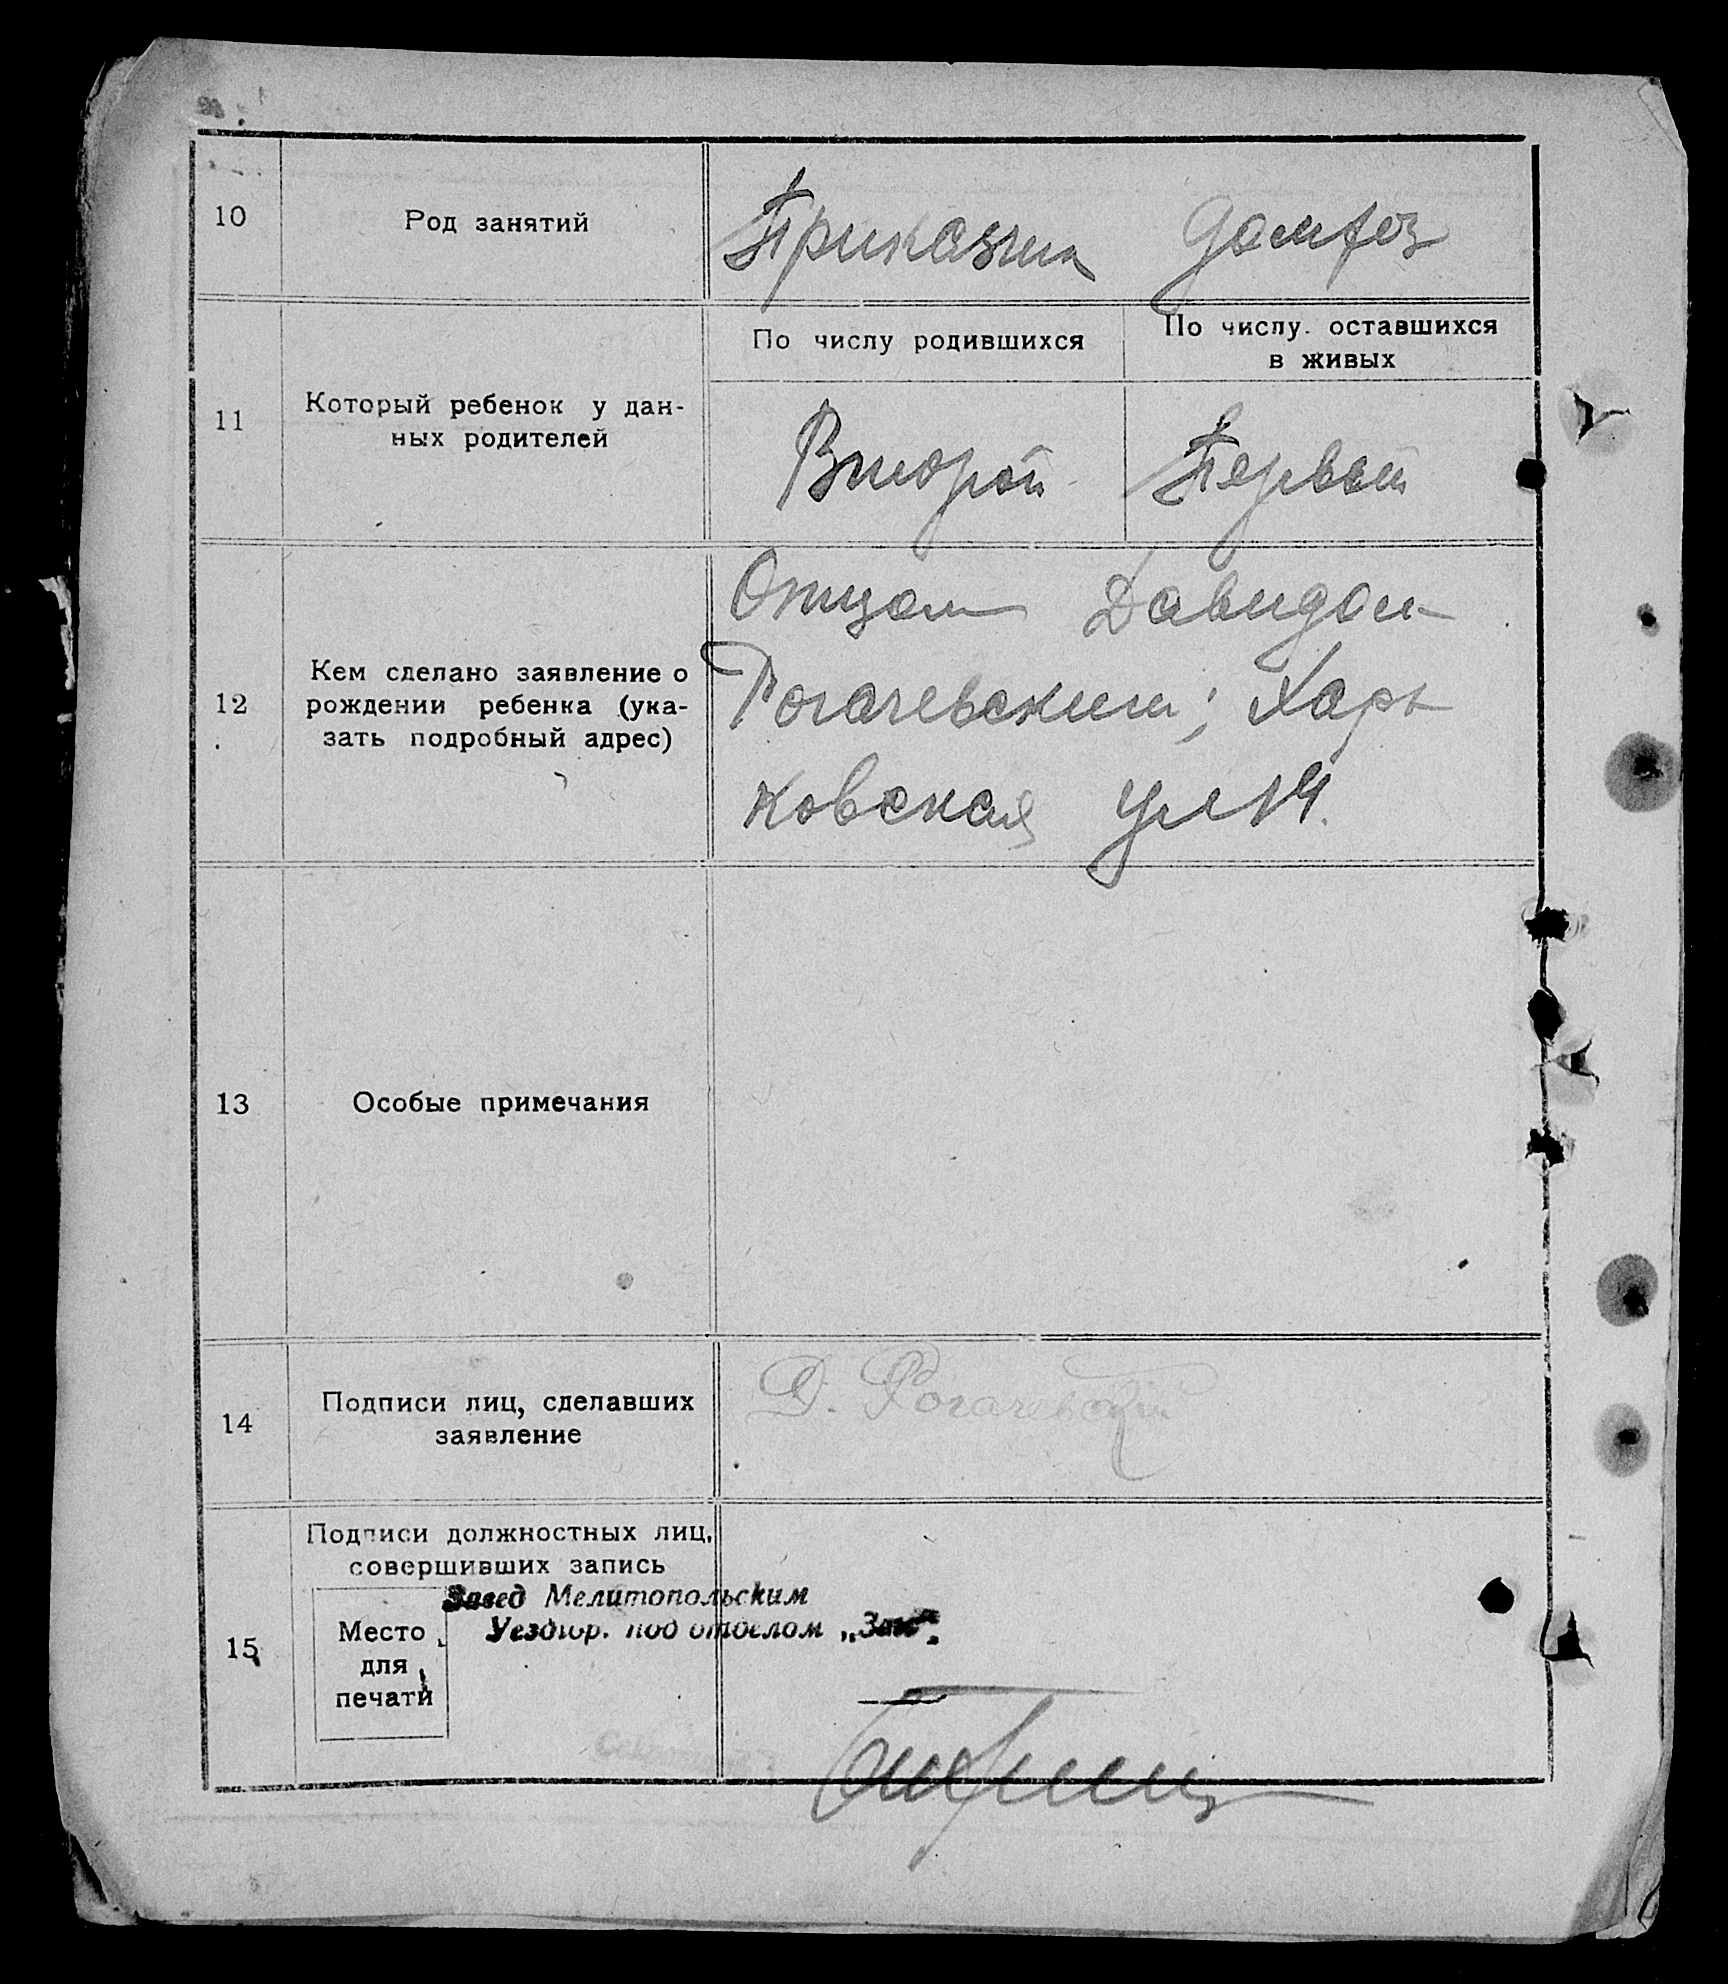 10
Род занятий
Приказчик домхоз
11
Который ребенок у дан-
ных родителей
По числу родившихся
По числу оставшихся
в живых
Второй
Первый
12
Кем сделано заявление о
рождении ребенка (ука-
зать подробный адрес)
Отцом Давидом
Рогачевским; Харь
ковская ул 14.
13
Особые примечания
14
Подписи лиц, сделавших
заявление
Д. Рогачевский
15
Подписи должностных лиц,
совершивших запись
Завед Мелитопольским
под отделом „Загс“.
Место
для
печати